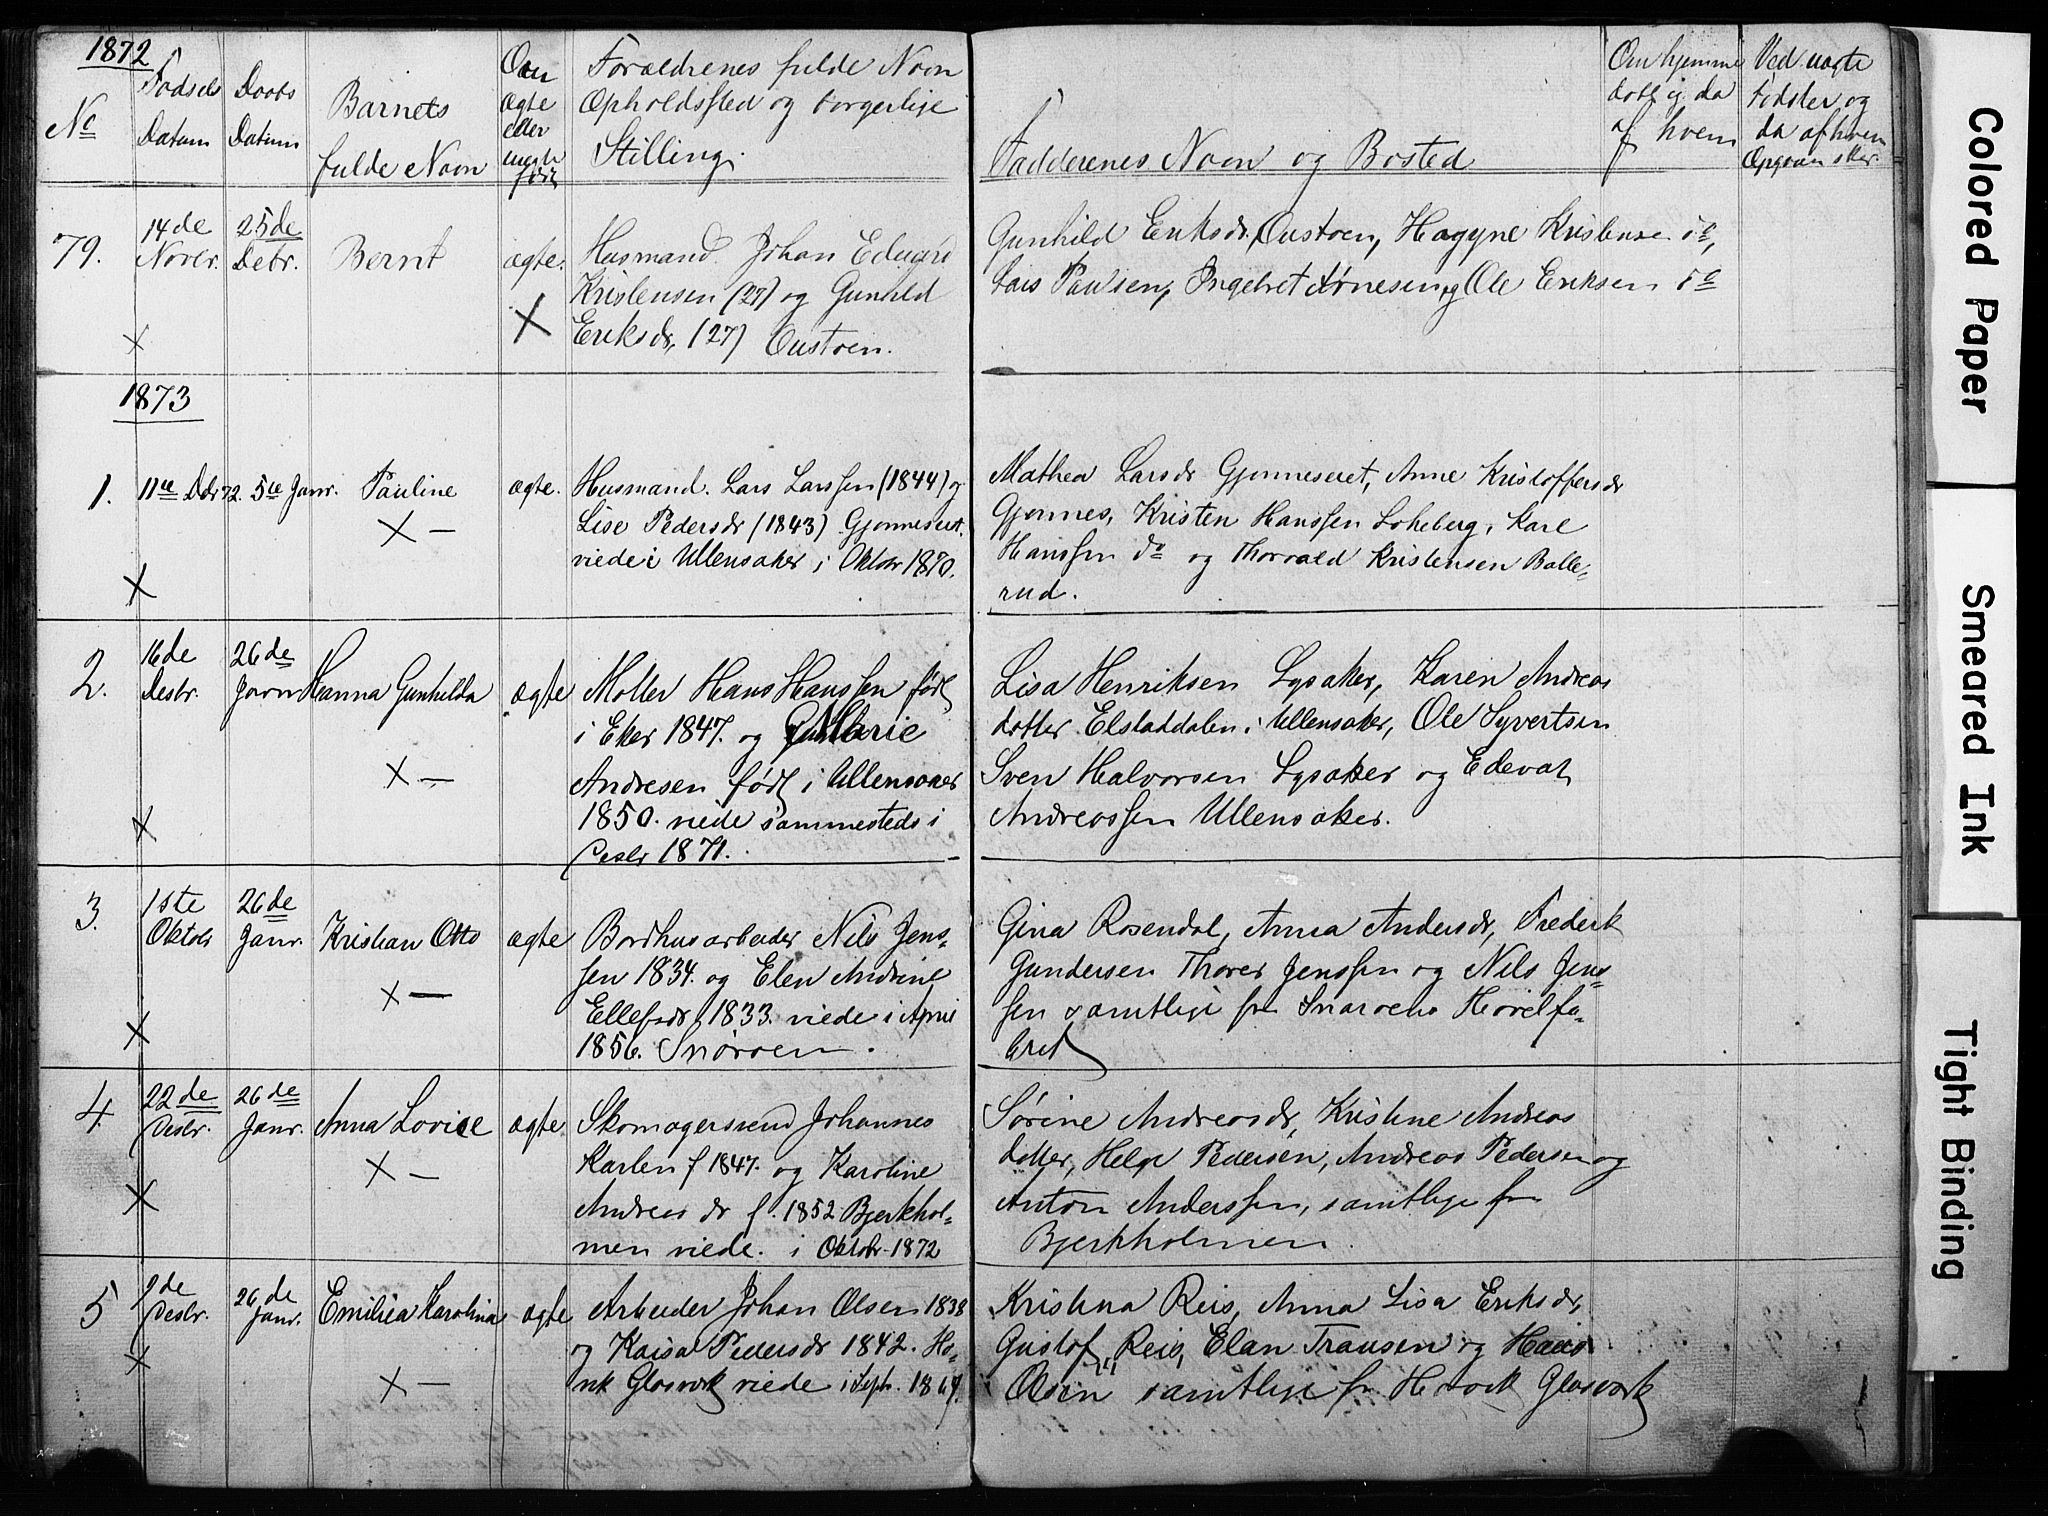 1872
No
Fødsels Datum
Daabs Datum
Barnets fulde Navn
Om ægte eller uægte født
Forældrenes fulde Navn
Opholdssted og borgerlige
Stilling.
Fadderenes Navn og Bosted
Om hjemme døbt ig da af hvem
Ved uægte Fødsler og da af hvem Opgaven sker.
79.
14de Novbr.
25de Debr.
Bernt
ægte.
Husmand Johan Eduard
Kristensen (27) og Gunhild
Eriksdr, (27) Oustøen.
Gunhild Eriksdr. Oustøen, Hagyne Kristense do,
Lars Paulsen, Ingebret Arnesen og Ole Eriksen do
1873
1.
11te Dbr 72.
5te Janr.
Pauline
ægte.
Husmand. Lars Larssen (1844) og
Lise Pedersdr (1843) Gjønneseiet.
viede i Ullensaker i Oktobr 1870.
Mathea Larsdr Gjønneseiet, Anne Kristoffersdr
Gjønnes, Kristen Hanssen Løkeberg, Karl
Hanssen do og Thorvald Kristensen Balle-
rud.
2.
16de Desbr.
26de Janr
Hanna Gunhilda
ægte
Møller Hans Hanssen født
i Eker 1847. og Marie
Andresen født i Ullensaker
1850. viede sammesteds i
Desbr 1871.
Lisa Henriksen Lysaker, Karen Andreas
datter Elstaddalen i Ullensaker, Ole Syvertsen
Sven Halvorsen Lysaker og Edevat
Andreassen Ullensaker.
3.
1ste Oktobr
26de Janr.
Kristian Otto
ægte
Bordhusarbeider Nils Jens-
sen 1834. og Elen Andrine
Ellefsdr 1833. viede i April
1856. Snarøen.
Gina Rosendal, Anna Andersdr, Frederk
Gundersen Thorer Jenssen og Nils Jens-
sen samtlige fr Snarøens Høvelfa-
brik
4.
22de Desbr.
26de Janr.
Anna Lovise
ægte
Skomagersvend Johannes
Karlen f 1847. og Karoline
Andreasdr f. 1852 Bjerkhol-
men viede. i Oktobr 1872
Sørine Andreasdr, Kristine Andreas
datter, Helge Pedersen, Andreas Pedersen og
Anton Anderssen, samtlige fra
Bjerkholmen.
5
2de Desbr.
26de Janr.
Emilia Karolina
ægte
Arbeider Johan Olsen 1838
og Kaisa Pedersdr 1842. Hø-
vik Glasværk viede i Septr.
Kristina Reis, Anna Lisa Eriksdr,
Gustof Reis, Elan Fransen og Hans
Olsen samtlige fr Høvik Glasværk
Colored Paper
Smeared Ink
Tight Binding